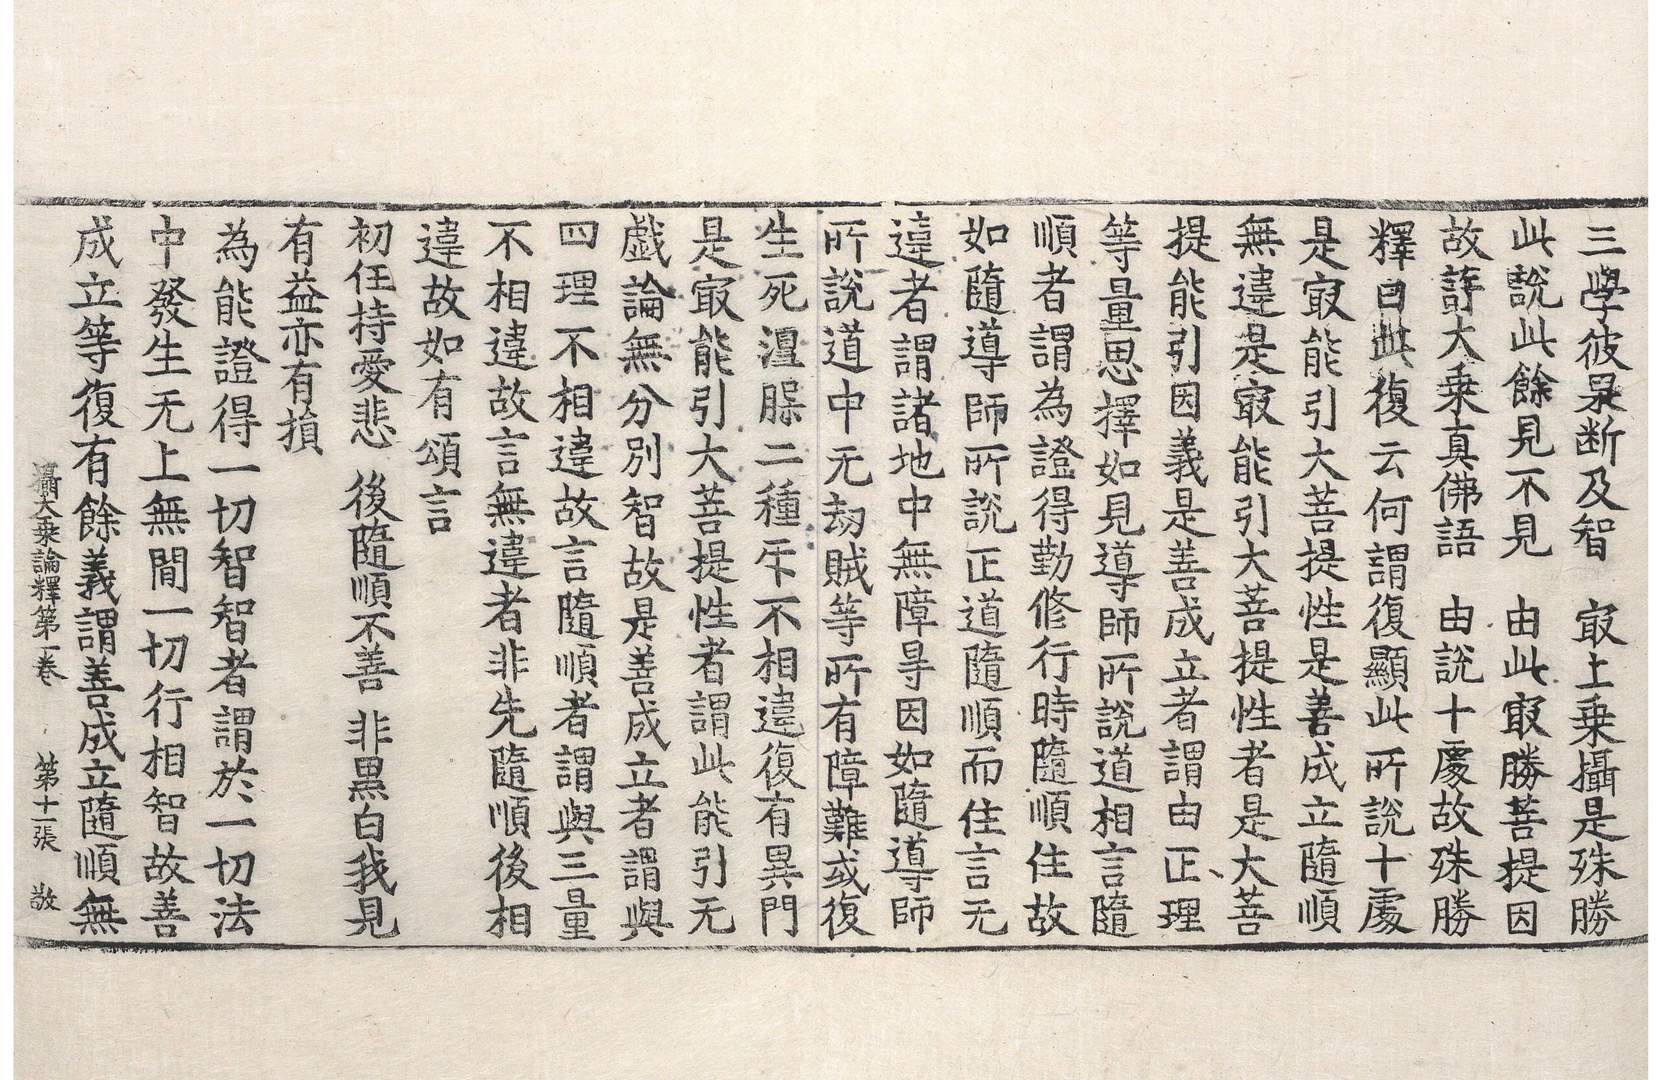 三學彼果断及智　冣上乗攝是殊勝
此說此餘見不見　由此冣勝菩提因
故許大乗真佛語　由說十處故殊勝
釋曰此復云何謂復顯此所說十處
是冣能引大菩提性是善成立隨順
無違是冣能引大菩提性者是大菩
提能引因義是善成立者謂由正理
等量思擇如見導師所說道相言隨
順者謂為證得勤修行時隨順住故
如隨導師所說正道隨順而住言无
違者謂諸地中無障㝵因如隨導師
所說道中无劫賊等所有障難或復
生死涅槃二種乐不相違復有異門
是冣能引大菩提性者謂此能引无
戯論無分別智故是善成立者謂與
四理不相違故言隨順者謂與三量
不相違故言無違者非先隨順後相
違故如有頌言
初任持愛悲　後隨順不善　非黒白我見
有益亦有損
為能證得一切智智者謂於一切法
中發生无上無間一切行相智故善
成立等復有餘義謂善成立隨順無
攝大乗論釋第一卷　第十一張　敬